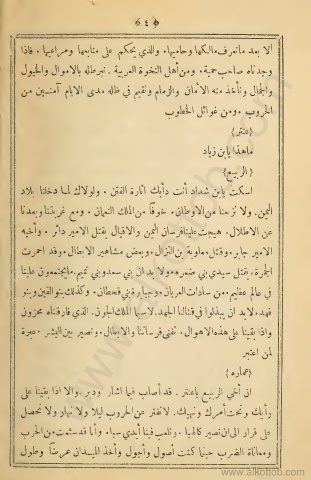 ﴿ ٤٥ ﴾
الا بعد ما نعرف مالكها وحاميها . والذي يحكم على منابعها ومراعيها . فاذا
وجدناه صاحب حمية . ومن أهل النخوة العربية . نبرطله بالاموال والخيول
والجمال ونأخذ منه الأمان والزمام ونقيم في ظله مدى الايام آمنسين من
الحروب . ومن غوائل الخطوب
﴿ عنتر ﴾
ما هذا يا بن زياد
﴿ الربيع ﴾
اسكت يا بن شداد أنت دأبك اثارة الفتن . ولولاك لما دخلنا بلاد
اليمن . ولا نزحنا من الاوطان . خوفًا من الملك النعمان . ومع غربتنا وبعدنا
عن الاطلال . هيجت علينا فرسان اليمن والاقيال بقتل الامير داثر . وأخيه
الامير جابر . وقتل معاوية بن النزال . وبعض مشاهير الابطال . وقد احمرت
الجمرة . بقتل سيدي بني ضمره . ولا بد ان بني سعد وبني تميم . ما يجتمعون علينا
في عالم عظيم . من سادات العربان . وجبابرة بني قحطان . وكذلك بنو القين وبنو
فهد . لا بد ان يبذلوا في قتالنا الجهد . لاسيما الملك الجون . الذي فارقناه محزون
واذا بقينا على هذه الاهوال . تفنى فرساننا والابطال . ونصير بين البشر . عبرة
لمن اعتبر
﴿ عماره ﴾
ان أخي الربيع يا عنتر . قد أصاب فيما اشار ودبر . والا اذا بقينا على
رأيك . وتحت أمرك ونهيك . لا نفتر عن الحروب ليلا ولا نهار ولا نحصل
على قرار الى ان نصير كالهبا . وتلعب فينا أيدي سبا . وأنا قد سئمت من الحرب
ومعاناة الضرب حينما كنت أصول وأجول وآخذ الميدان عرضًا وطول
www.alkottob.com